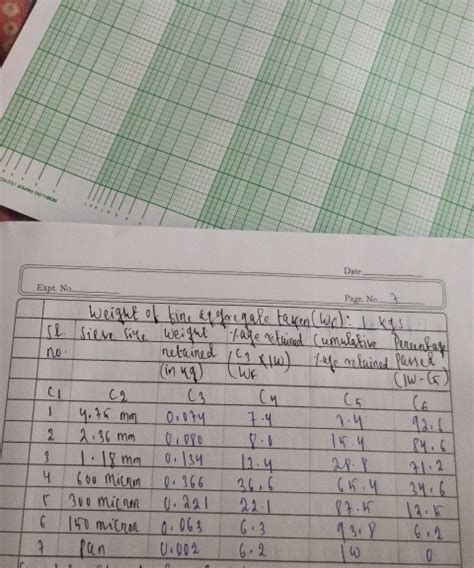 Date
Expt. No.
Page. No. 7
Weight of fine aggregate taken (Wf): 1 kgs
Sl. no. Sieve size Weight retained (in kg) %age retained (C3 X100) (Wf Cumulative %age retained Percentage Passed (100-C5)
C1 C2 C3 C4 C5 C6
1 4.75 mm 0.074 7.4 7.4 92.6
2 2.36 mm 0.080 8.0 15.4 84.6
3 1.18 mm 0.134 13.4 28.8 71.2
4 600 micron 0.366 36.6 65.4 34.6
5 300 micron 0.221 22.1 87.5 12.5
6 150 micron 0.063 6.3 93.8 6.2
7 pan 0.002 6.2 100 0